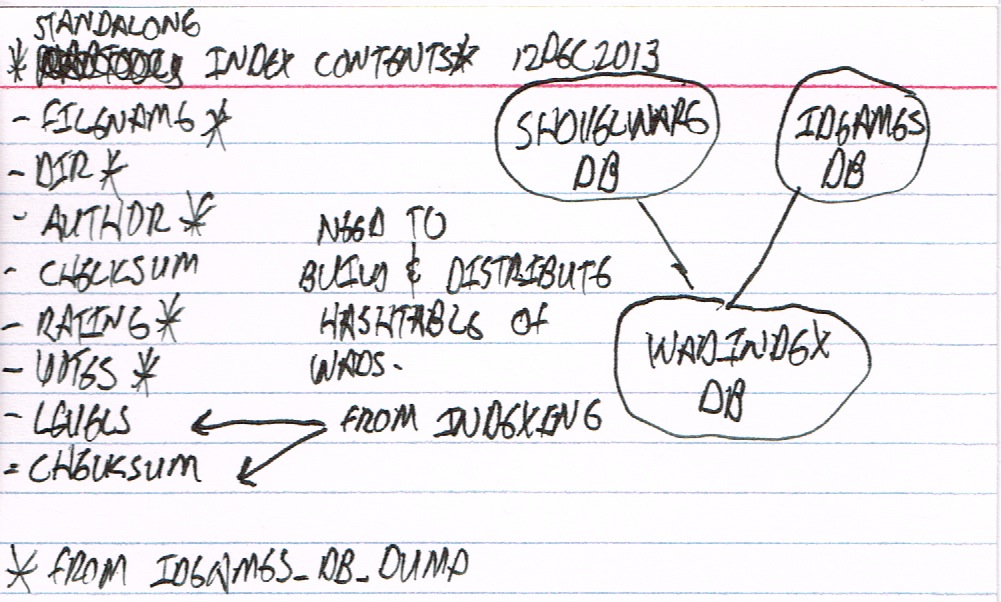 STANDALONE
* INDEX CONTENTS* 12DEC2013
- FILENAME *
- DIR *
- AUTHOR *
- CHECKSUM
- RATING *
- VOTES *
- LEVELS
- CHECKSUM
NEED TO
BUILD & DISTRIBUTE
HASHTABLE OF
WADS.
FROM INDEXING
SHOVELWARE
DB
IDGAMES
DB
WAD_INDEX
DB
* FROM IDGAMES_DB_DUMP